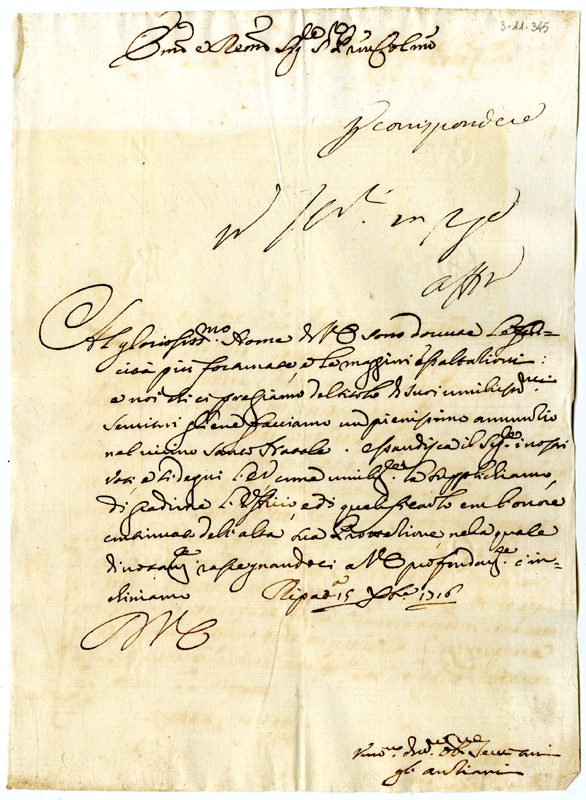 3-11-345
Em̄o e Reuer̄mo Sig.re P.ron Colmo
corrispondere
in
Al gloriosiss.mo Nome di V.E. sono douute le feli-
cità più formate, e le maggiori esaltationi:
e noi che ci pregiamo del titolo di suoi umilissimi
Seruitori gliene facciamo un pienissimo annuntio
nel uicino Santo Natale. esaudisca il Sig.re i nostri
uoti, e si degni l'E.V. come umilm.te la supplichiamo
di gradirne l'Uffitio, e di qualificarlo con l'onore
continuato dell'alta sua Protettione, nela quale
diuotam.te rassegnandoci a V.E. profondam.te c'in-
chiniamo Ripat.a 15 Xbre 1716
D V E
Vmi.mi diu.mi Ob.mi Seruitori
gli antiani